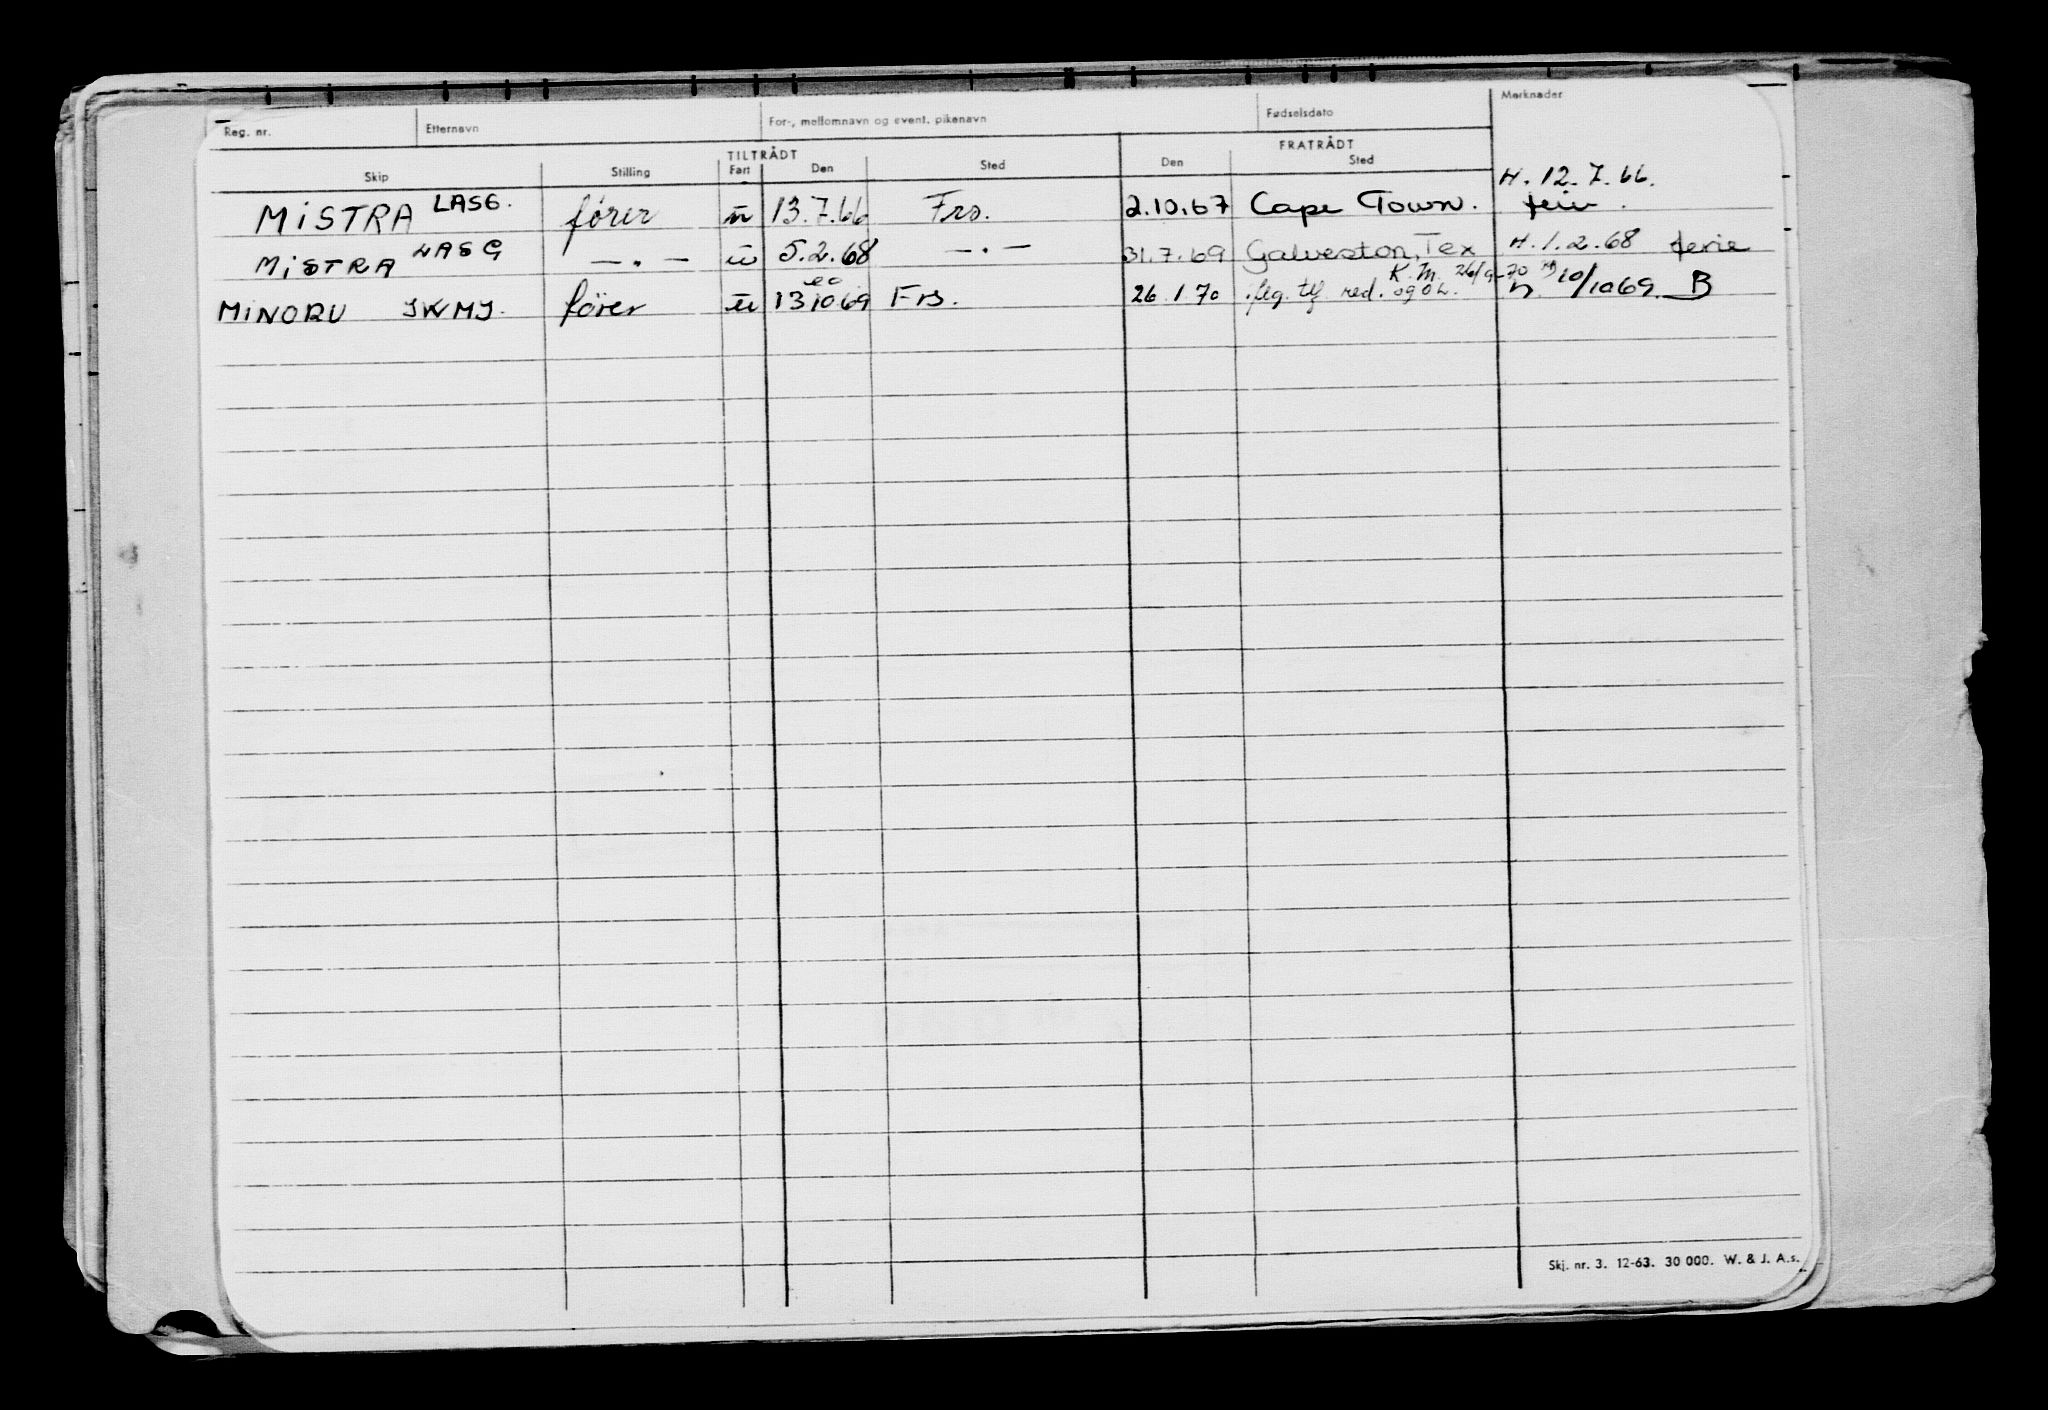 Reg. nr. Etternavn For-, mellomnavn og event. pikenavn Fødselsdato Merknader
TILTRÅDT FRATRÅDT
Skip Stilling Fart Den Sted Den Sted
H. 12.7.66.
MISTRA LASG. fører ū 13.7.66 Frs. 2.10.67 Cape Town. ferie.
MISTRA LASG —.— ū 5.2.68 —.— 31.7.69 Galveston, Tex H.1.2.68 ferie
K.M. 26/9-70
MINORU JWMJ. fører ū 13.10.69 Frs. 26.1.70 flg. tlf red. 10/1069 B
Skj. nr. 3. 12-63. 30 000. W. & J. A.s.